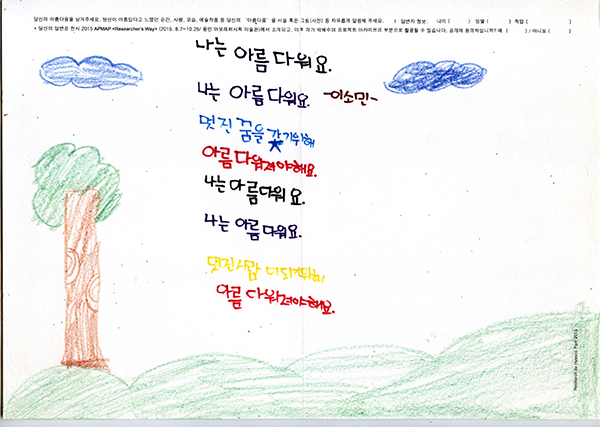 당신의 아름다움을 남겨주세요. 당신이 아름답다고 느꼈던 순간, 사람, 모습, 예술작품 등 당신의 '아름다움'을 서술 혹은 그림(사진) 등 자유롭게 말씀해 주세요. | 답변자 정보: 나이 ( ) 성별 ( ) 직업 ( )
• 당신의 답변은 전시 2015 APMAP <Researcher's Way> (2015. 8.7~10.25/ 용인 아모레퍼시픽 미술관)에서 소개되고, 이후 작가 박혜수의 프로젝트 아카이브의 부분으로 활용될 수 있습니다. 공개에 동의하십니까? 예 ( ) / 아니오 ( )
나는 아름다워요.
나는 아름다워요. -이소민-
멋진 꿈을 갖기위해
아름다워져야해요.
나는 아름다워요.
나는 아름다워요.
멋진사람이 되기위해
아름다워져야해요.
Research by Hyesoo Park 2015